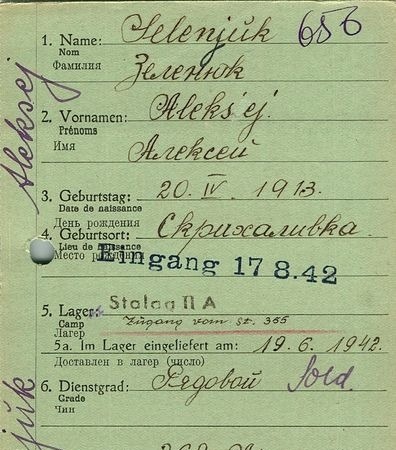 Aleksej
1. Name: Selenjuk 656
Nom
Фамилия Зеленюк
2. Vornamen: Aleksej
Prénoms
Имя Алексей
3. Geburtstag: 20. IV. 1913.
Date de naissance
День рождения
4. Geburtsort: Скрихаливка
Lieu de naissance
Место рождения
Eingang 17 8. 42
5. Lager: Stalag II A
Camp Zugang vom St. 365
Лагерь
5a. Im Lager eingeliefert am: 19. 6. 1942.
Доставлен в лагер (число)
6. Dienstgrad: Рядовой Sold.
Grade
Чин